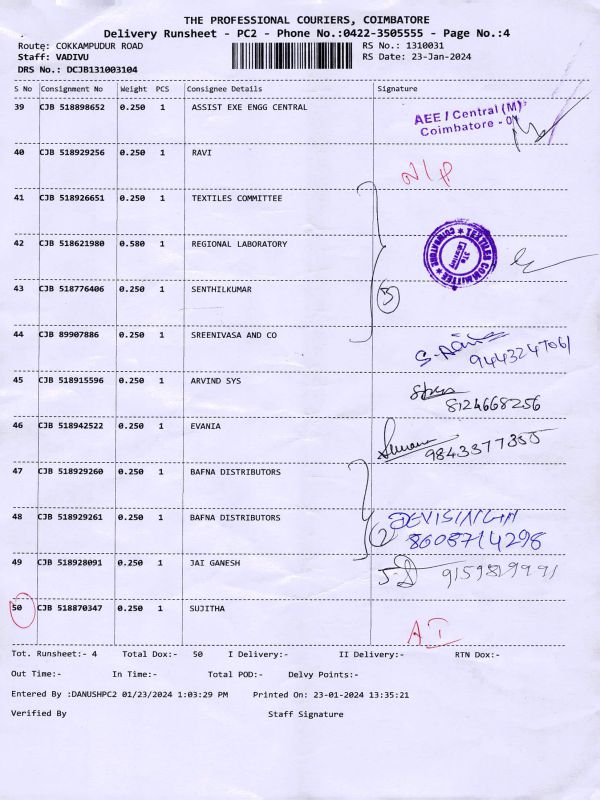 THE PROFESSIONAL COURIERS, COIMBATORE
Delivery Runsheet - PC2 - Phone No.:0422-3505555 - Page No.:4
Route: COKKAMPUDUR ROAD RS No.: 1310031
Staff: VADIVU RS Date: 23-Jan-2024
DRS No.: DCJB131003104
S No Consignment No Weight PCS Consignee Details Signature
39 CJB 518898652 0.250 1 ASSIST EXE ENGG CENTRAL
AEE / Central (M)
Coimbatore -
40 CJB 518929256 0.250 1 RAVI
N/P
41 CJB 518926651 0.250 1 TEXTILES COMMITTEE
42 CJB 518621980 0.580 1 REGIONAL LABORATORY
TEXTILES COMMITTEE * COIMBATORE *
43 CJB 518776406 0.250 1 SENTHILKUMAR
44 CJB 89907886 0.250 1 SREENIVASA AND CO
9443247061
45 CJB 518915596 0.250 1 ARVIND SYS
8124668256
46 CJB 518942522 0.250 1 EVANIA
9843377355
47 CJB 518929260 0.250 1 BAFNA DISTRIBUTORS
48 CJB 518929261 0.250 1 BAFNA DISTRIBUTORS
2
DEVISINGH
8608714298
49 CJB 518928091 0.250 1 JAI GANESH
9159819991
50 CJB 518870347 0.250 1 SUJITHA
AI
Tot. Runsheet:- 4 Total Dox:- 50 I Delivery:- II Delivery:- RTN Dox:-
Out Time:- In Time:- Total POD:- Delvy Points:-
Entered By :DANUSHPC2 01/23/2024 1:03:29 PM Printed On: 23-01-2024 13:35:21
Verified By Staff Signature